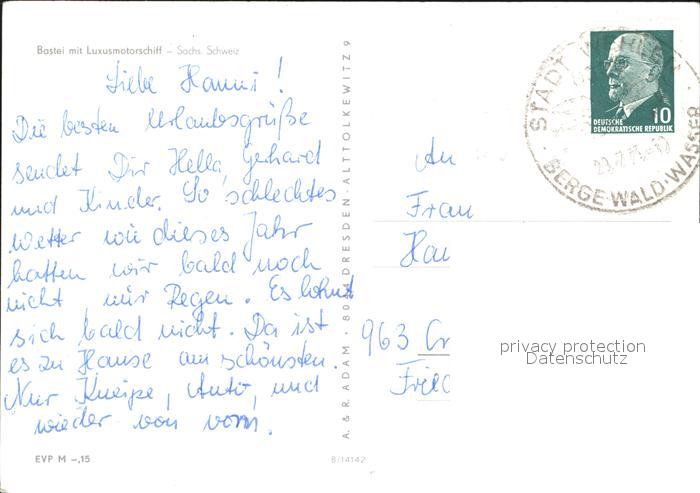 Bastei mit Luxusmotorschiff – Sächs. Schweiz
Liebe Hanni!
Die besten Urlaubsgrüße
sendet Dir Hella, Gerhard
und Kinder. So schlechtes
Wetter wie dieses Jahr
hatten wir bald noch
nicht nur Regen. Es lohnt
sich bald nicht. Da ist
es zu Hause am schönsten.
Nur Kneipe, Auto, und
wieder von vorn.
EVP M –,15
A. & R. ADAM · 8044 DRESDEN - ALTTOLKEWITZ 9
B/14142
DEUTSCHE
DEMOKRATISCHE REPUBLIK
10
STADT
BERGE·WALD·WASSER
An
Frau
963
privacy protection
Datenschutz